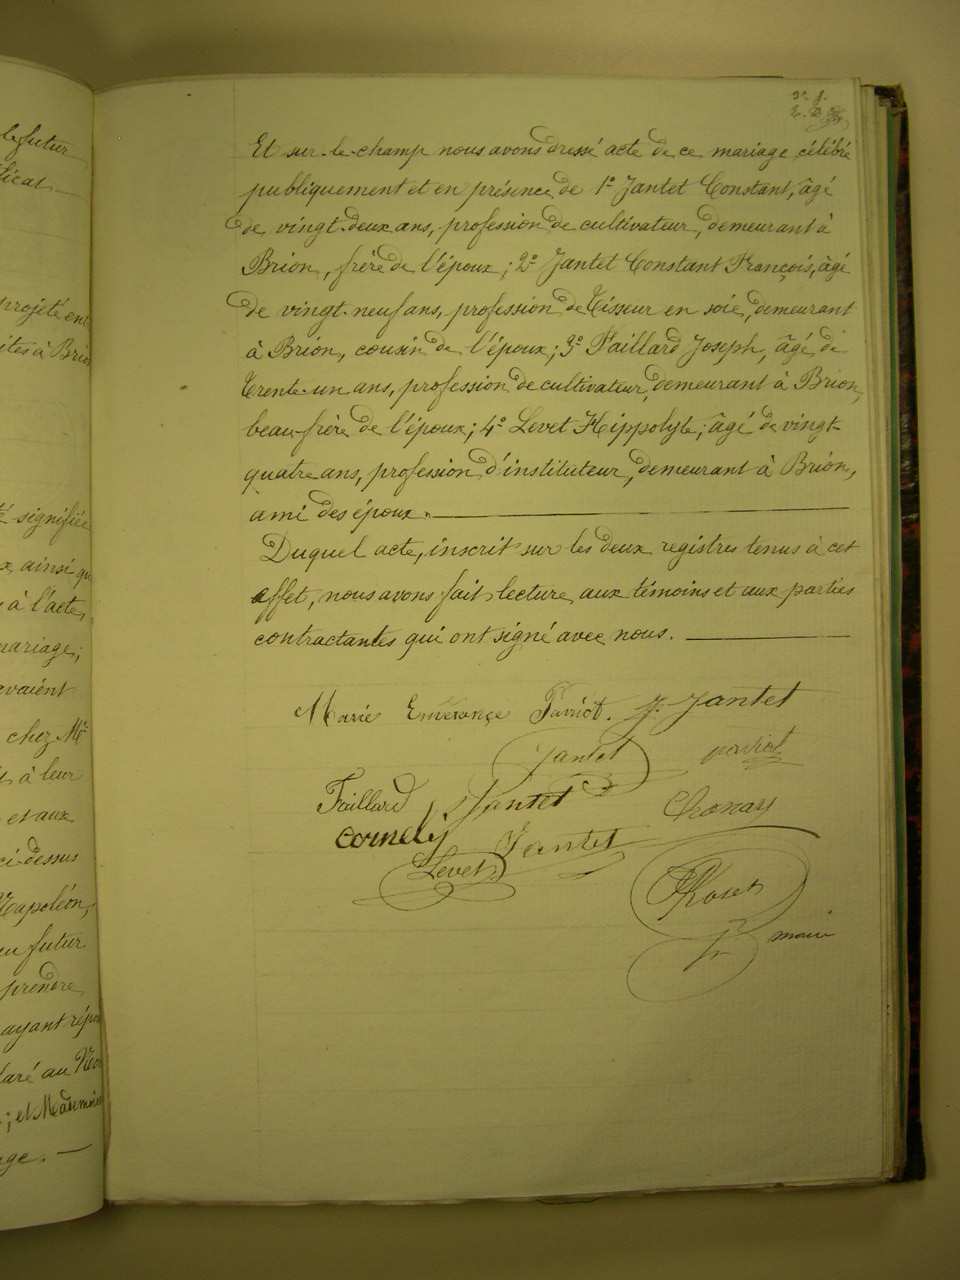 le futur
projeté ont
ites à Brion
té signifiée
x ainsi qu
à l'acte,
mariage;
avaient
chez Me
à leur
et aux
ci-dessus
Napoléon,
eu futur
prendre
ayant répon
laré au No
; et Mademois
age. —
Et sur-le-champ nous avons dressé acte de ce mariage célébré
publiquement et en présence de 1° Jantet Constant, âgé
de vingt-deux ans, profession de cultivateur, demeurant à
Brion, frère de l'époux; 2° Jantet Constant François, âgé
de vingt-neuf ans, profession de Tisseur en soie, demeurant
à Brion, cousin de l'époux; 3° Faillard Joseph, âgé de
Trente-un ans, profession de cultivateur, demeurant à Brion,
beau-frère de l'époux; 4° Levet Hippolyte, âgé de vingt-
quatre ans, profession d'instituteur, demeurant à Brion,
ami des époux.
Duquel acte, inscrit sur les deux registres tenus à cet
effet, nous avons fait lecture aux témoins et aux parties
contractantes qui ont signé avec nous.
Marie J. Jantet
Jantet
Faillard Jantet
Cornely Jantet
Levet
maire